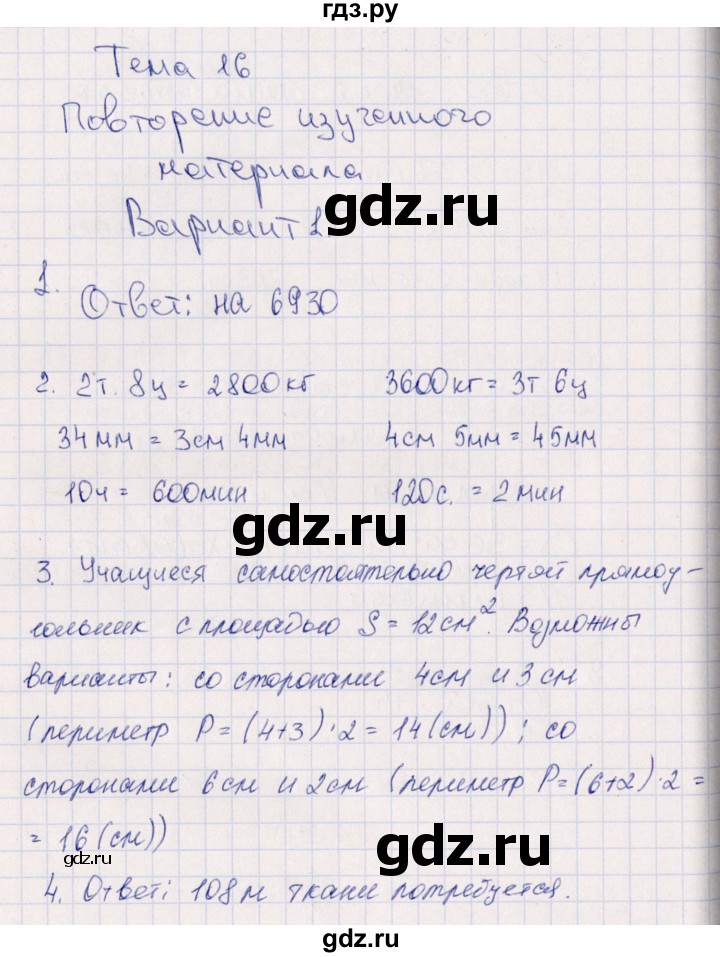 гдз.ру
Тема 16
Повторение изученного
материала
gdz.ru
Вариант 1
1.
Ответ: на 6930
2. 2т. 8ц = 2800кг 3600кг = 3т 6ц
34мм = 3см 4мм 4см 5мм = 45мм
10ч = 600мин 120с. = 2мин
gdz.ru
3. Учащиеся самостоятельно чертят прямоу-
гольник с площадью S = 12см². Возможны
варианты: со сторонами 4см и 3см
(периметр P = (4+3)·2 = 14(см)); со
сторонами 6см и 2см (периметр P = (6+2)·2 =
= 16(см))
gdz.ru
gdz.ru
4. Ответ: 108м ткани потребуется.
gdz.ru